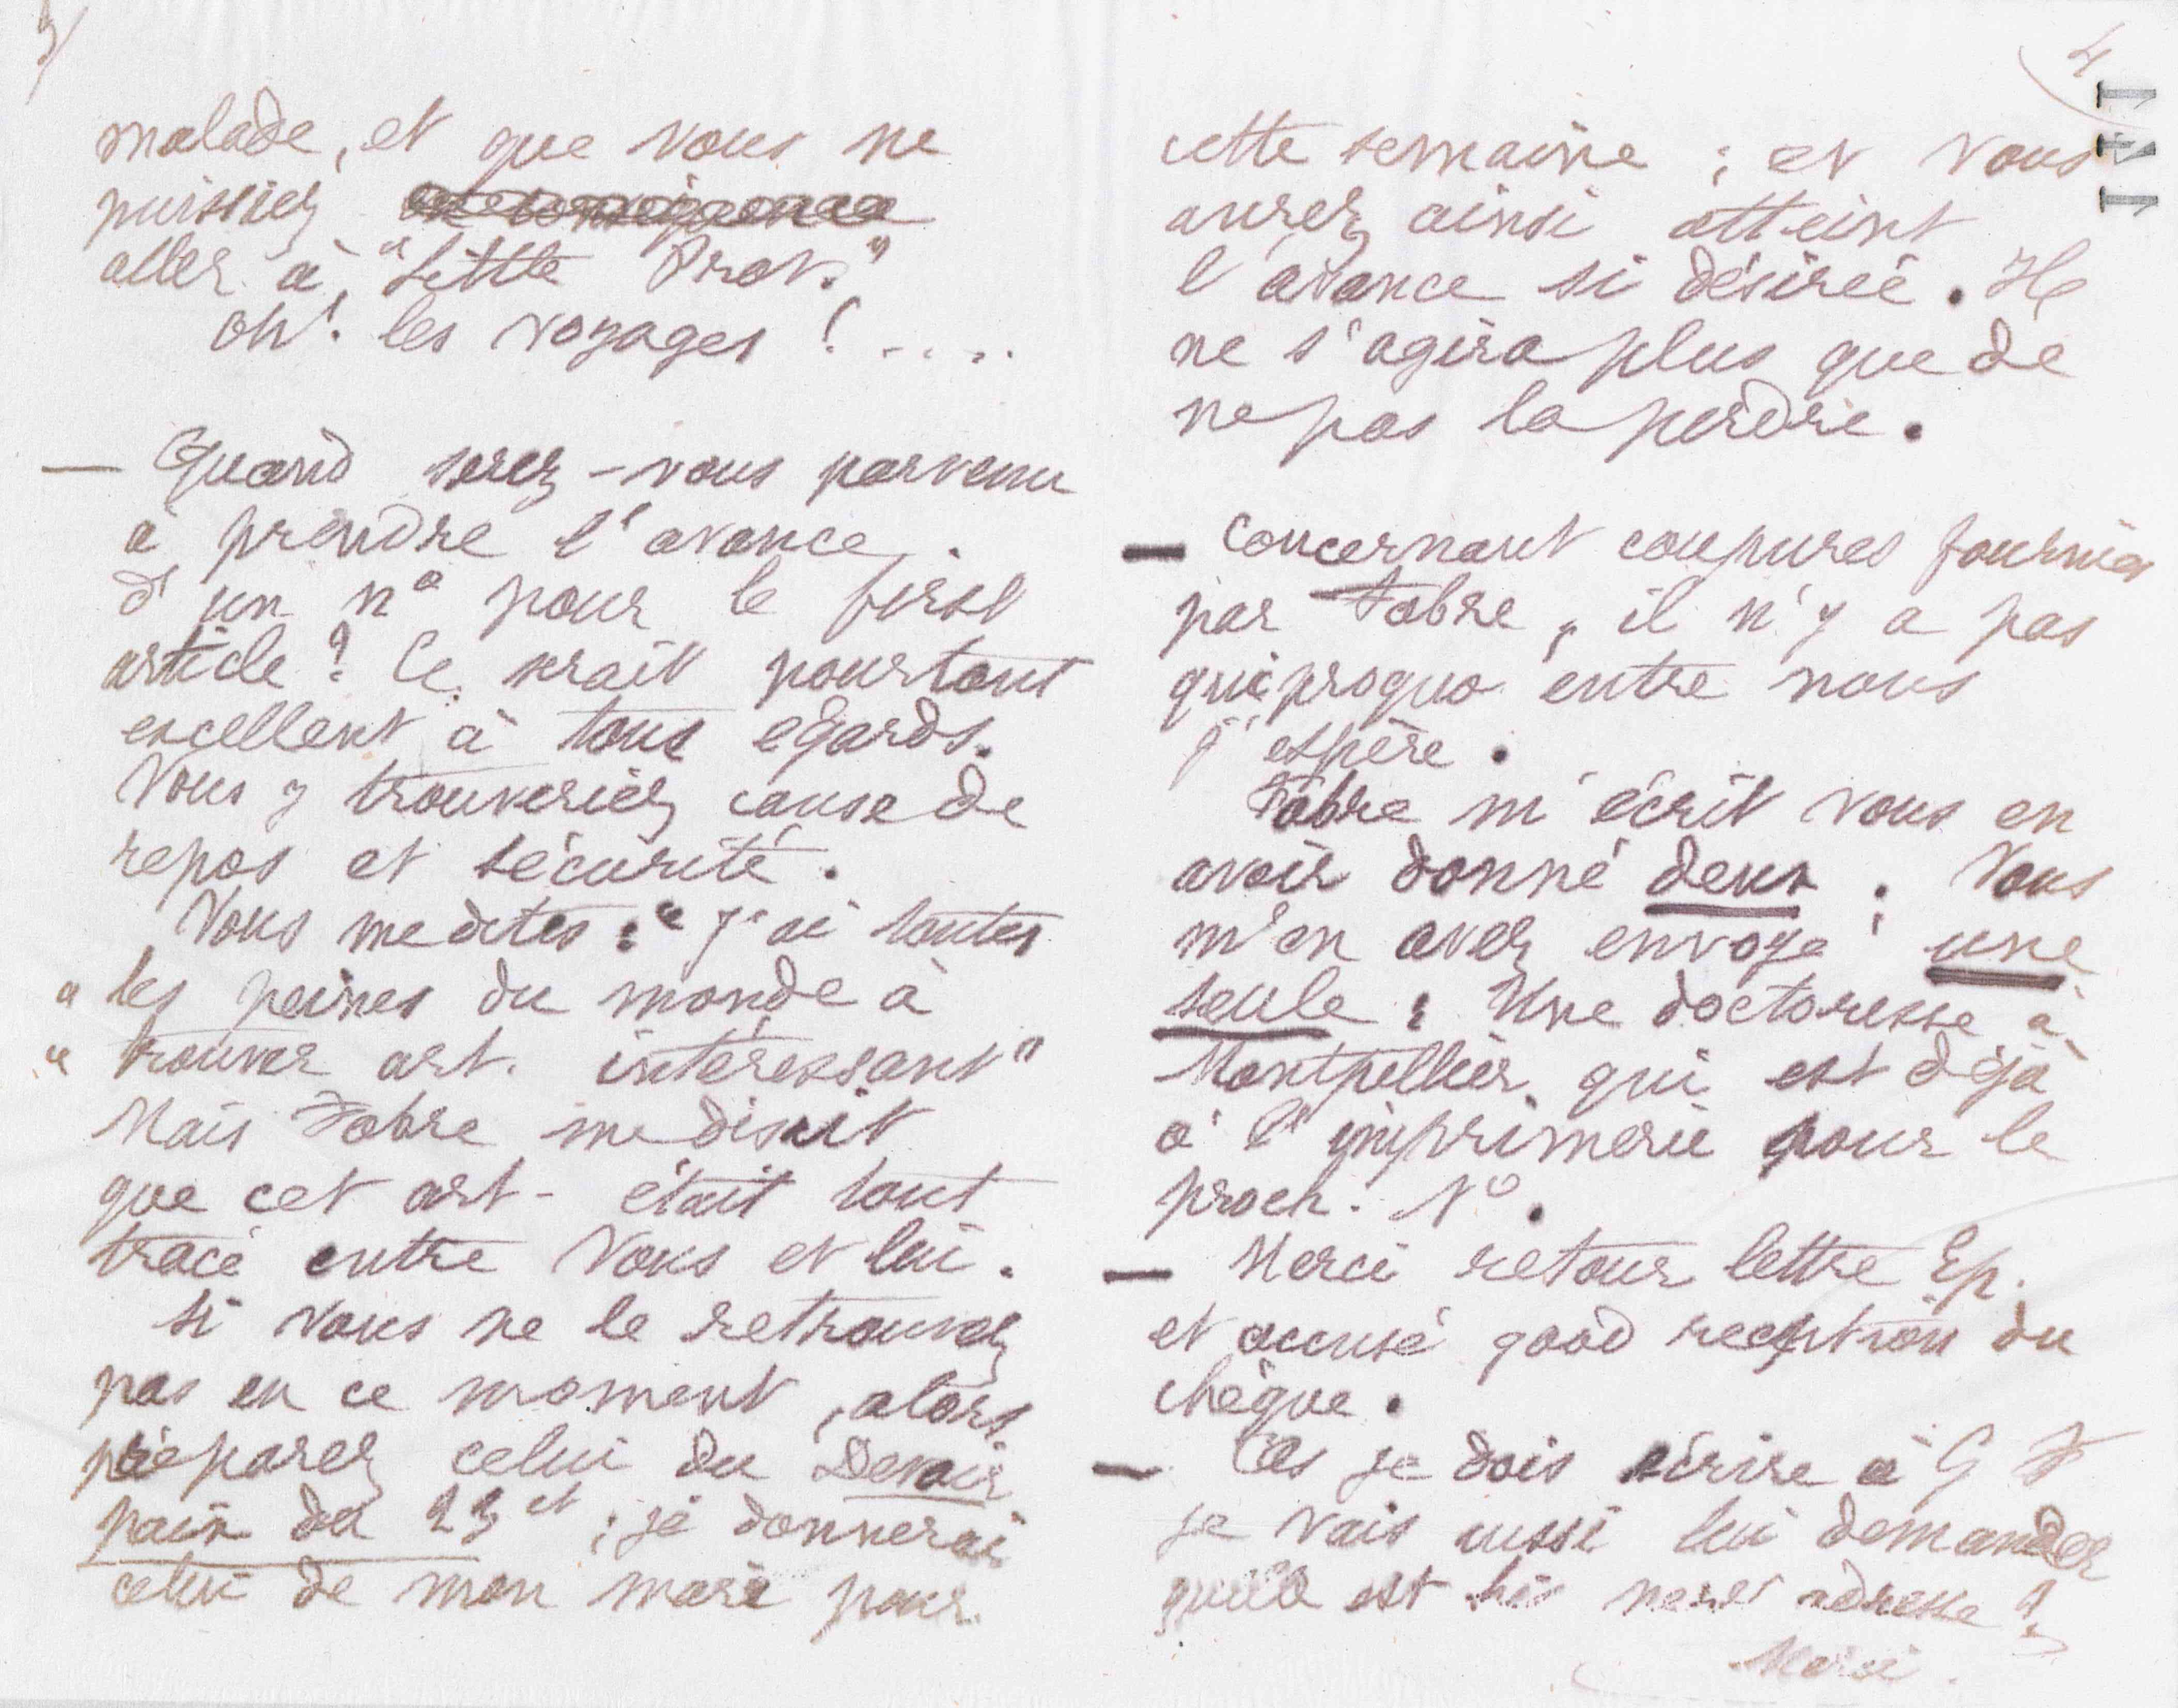 3/
malade, et que vous ne
puissiez
aller à "Little Prov."
Oh! les voyages! ....
— Quand serez-vous parvenu
à prendre l'avance
d'un nº pour le first
article? Ce serait pourtant
excellent à tous égards.
Vous y trouveriez cause de
repos et sécurité.
Vous me dites : "J'ai toutes
" les peines du monde à
" trouver art. intéressant"
Mais Fabre me disait
que cet art- était tout
tracé entre Vous et lui.
Si vous ne le retrouvez
pas en ce moment, alors
préparez celui du Devoir
paix du 23 ct ; je donnerai
celui de mon mari pour
4
cette semaine ; et vous
aurez ainsi atteint
l'avance si désirée. Il
ne s'agira plus que de
ne pas la perdre.
— Concernant coupures fournies
par Fabre, il n'y a pas
quiproquo entre nous
j'espère.
Fabre m'écrit vous en
avoir donné deux ; Vous
m'en avez envoyé une
seule : Une doctoresse à
Montpellier qui est déjà
à l'imprimerie pour le
proch. Nº.
— Merci retour lettre Ep.
et accusé good reception du
chèque.
— je dois écrire à G F
je vais aussi lui demander
quelle est his adresse?
Merci.